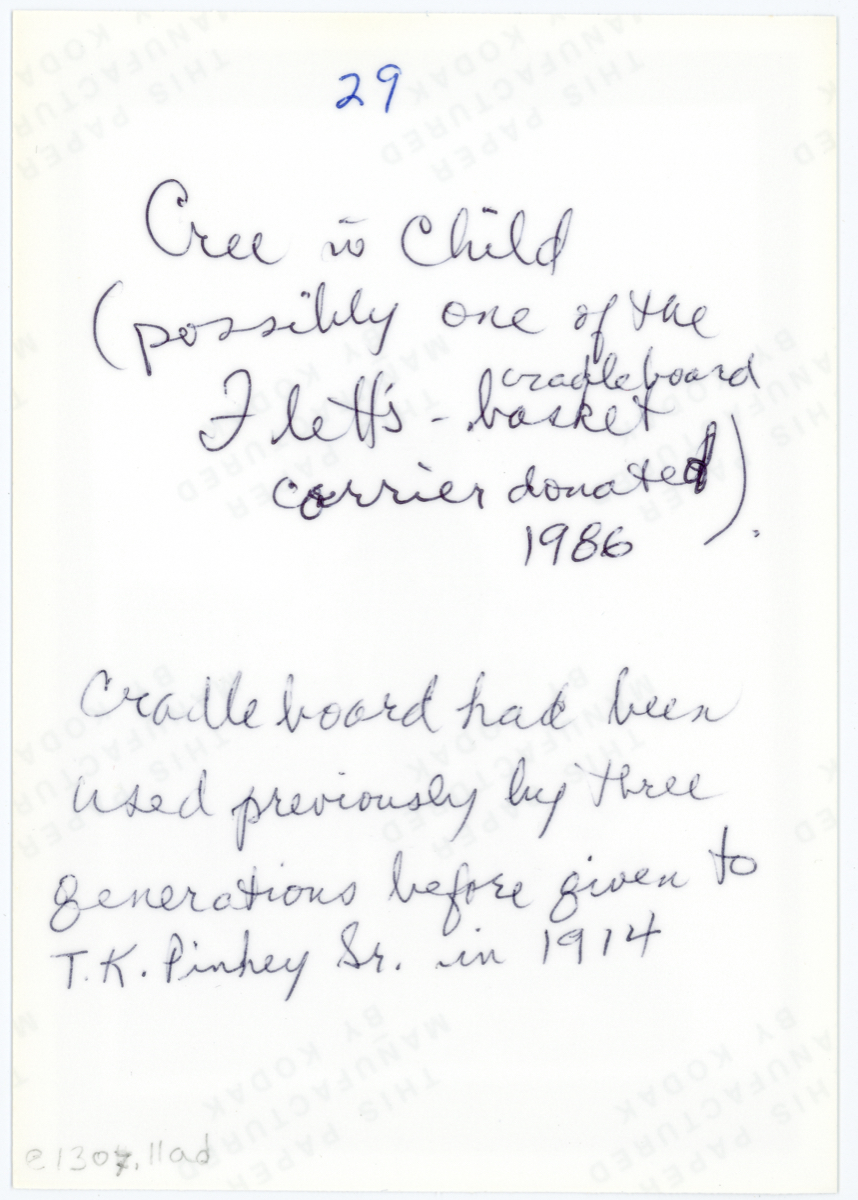 29
Cree w̄ Child
(possibly one of the
cradleboard
Flett's - basket
carrier donated).
1986
Cradle board had been
used previously by three
generations before given to
T.K. Pinhey Sr. in 1914
THIS PAPER
MANUFACTURED
BY KODAK